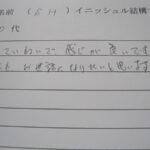 名前 (S H) イニシャル結構
代
ていねいで、感じが良いです
お世話になりたいと思います